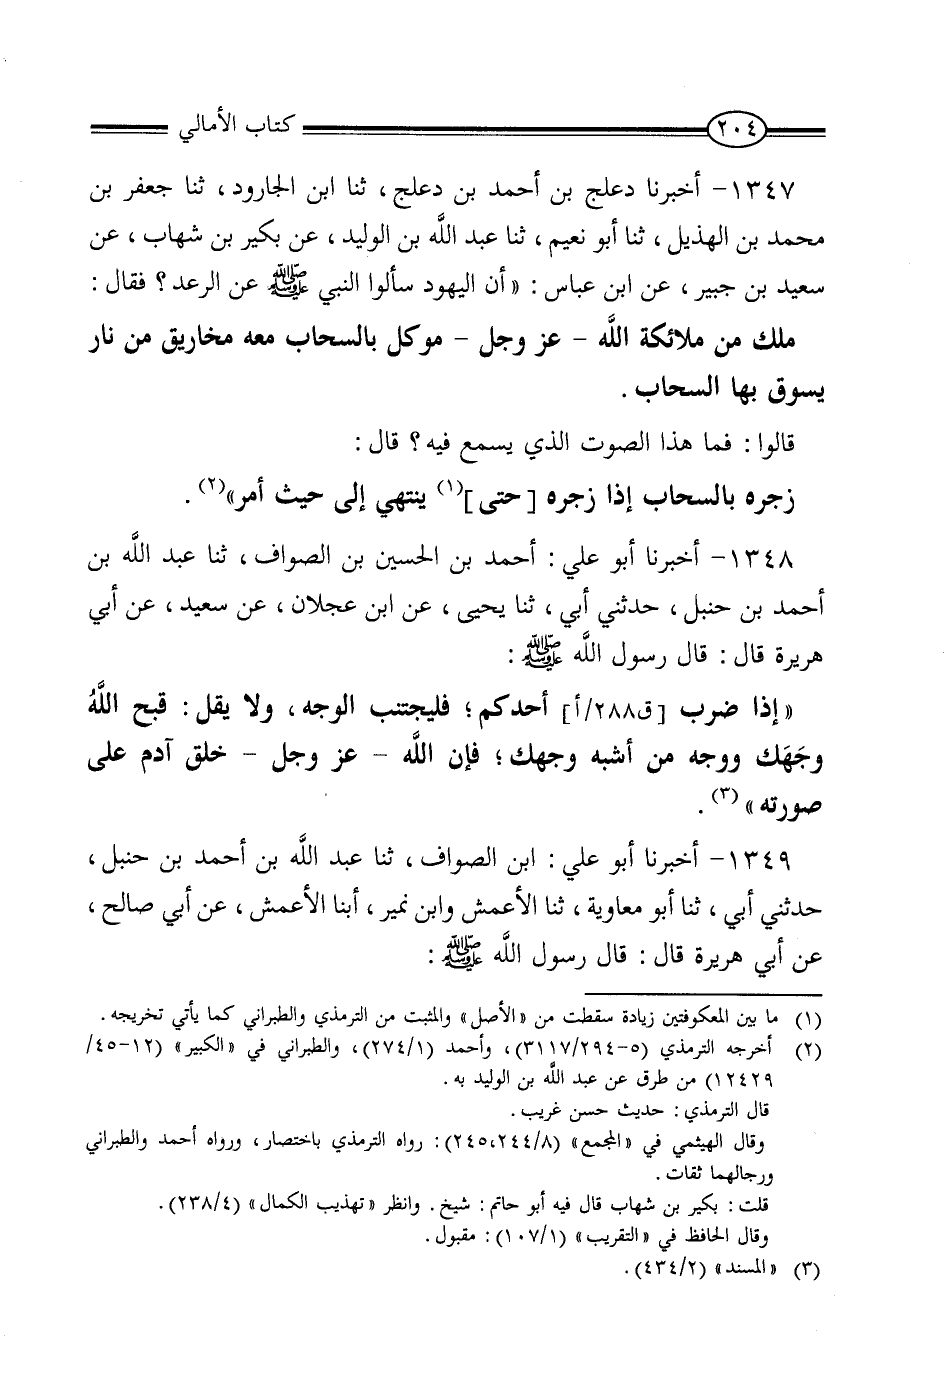 ٢٠٤ كتاب الأمالي
١٣٤٧- أخبرنا دعلج بن أحمد بن دعلج ، ثنا ابن الجارود ، ثنا جعفر بن
محمد بن الهذيل ، ثنا أبو نعيم ، ثنا عبد اللَّه بن الوليد ، عن بكير بن شهاب ، عن
سعيد بن جبير ، عن ابن عباس : « أن اليهود سألوا النبي ﷺ عن الرعد ؟ فقال :
ملك من ملائكة اللَّه - عز وجل - موكل بالسحاب معه مخاريق من نار
يسوق بها السحاب .
قالوا : فما هذا الصوت الذي يسمع فيه ؟ قال :
زجره بالسحاب إذا زجره [حتى](١) ينتهي إلى حيث أمر»(٢) .
١٣٤٨- أخبرنا أبو علي : أحمد بن الحسين بن الصواف ، ثنا عبد اللَّه بن
أحمد بن حنبل ، حدثني أبي ، ثنا يحيى ، عن ابن عجلان ، عن سعيد ، عن أبي
هريرة قال : قال رسول اللَّه ﷺ :
« إذا ضرب [ق٢٨٨/أ] أحدكم ؛ فليجتنب الوجه ، ولا يقل : قبح اللَّهُ
وجَهَك ووجه من أشبه وجهك ؛ فإن اللَّه - عز وجل - خلق آدم على
صورته »(٣) .
١٣٤٩- أخبرنا أبو علي : ابن الصواف ، ثنا عبد اللَّه بن أحمد بن حنبل ،
حدثني أبي ، ثنا أبو معاوية ، ثنا الأعمش وابن نمير ، أبنا الأعمش ، عن أبي صالح ،
عن أبي هريرة قال : قال رسول اللَّه ﷺ :
(١) ما بين المعكوفتين زيادة سقطت من «الأصل» والمثبت من الترمذي والطبراني كما يأتي تخريجه .
(٢) أخرجه الترمذي (٥-٣١١٧/٢٩٤)، وأحمد (٢٧٤/١)، والطبراني في «الكبير» (١٢-٤٥/
١٢٤٢٩) من طرق عن عبد اللَّه بن الوليد به .
قال الترمذي : حديث حسن غريب .
وقال الهيثمي في «المجمع» (٢٤٥،٢٤٤/٨) : رواه الترمذي باختصار ، ورواه أحمد والطبراني
ورجالهما ثقات .
قلت : بكير بن شهاب قال فيه أبو حاتم : شيخ . وانظر «تهذيب الكمال» (٢٣٨/٤).
وقال الحافظ في «التقريب» (١٠٧/١) : مقبول .
(٣) «المسند» (٤٣٤/٢) .